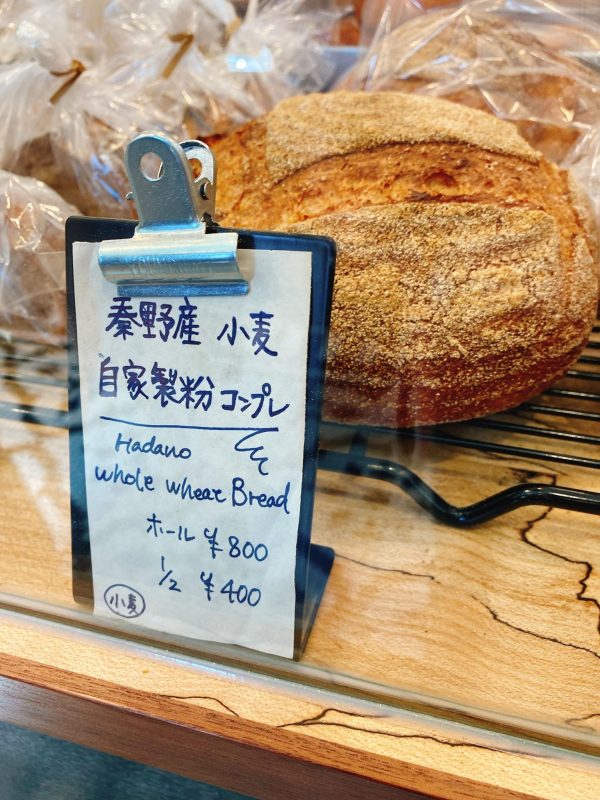 秦野産 小麦
自家製粉 コンプレ
Hadano
whole wheat Bread
ホール ¥800
1/2 ¥400
小麦